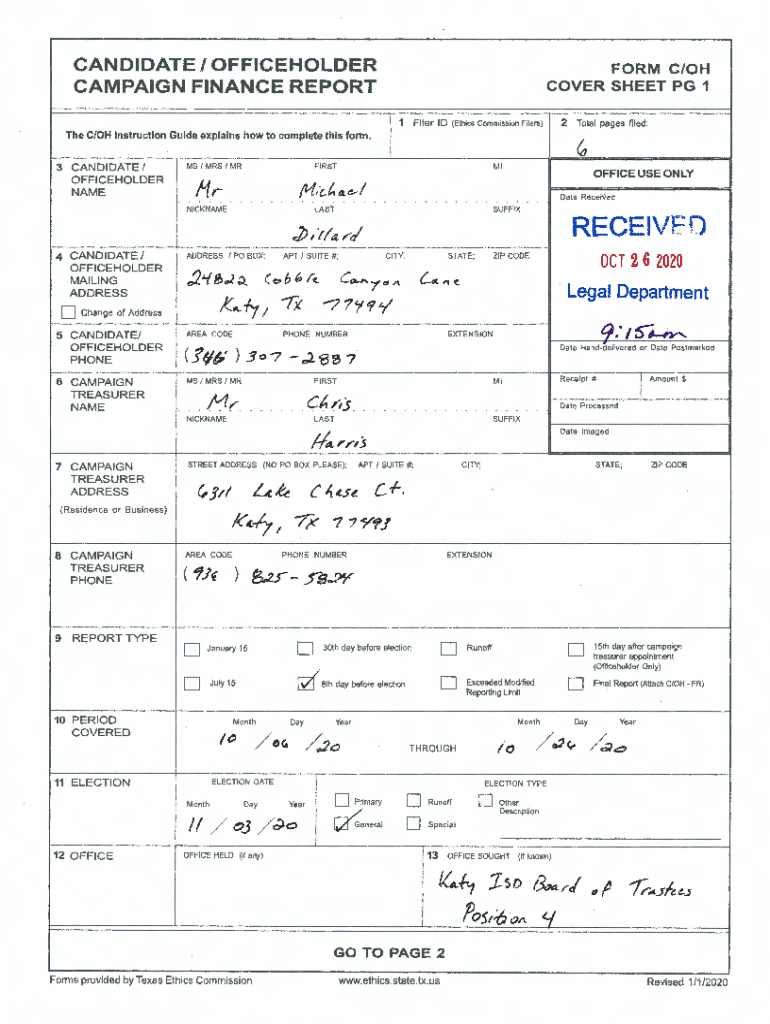 CANDIDATE / OFFICEHOLDER
CAMPAIGN FINANCE REPORT
FORM C/OH
COVER SHEET PG 1
The C/OH Instruction Guide explains how to complete this form.
1 Filer ID (Ethics Commission Filers)
2 Total pages filed:
6
3 CANDIDATE / OFFICEHOLDER NAME
MS / MRS / MR FIRST MI
Mr Michael
NICKNAME LAST SUFFIX
Dillard
OFFICE USE ONLY
Date Received
RECEIVED
OCT 26 2020
Legal Department
9:15am
Date Hand-delivered or Date Postmarked
Receipt # Amount $
Date Processed
Date Imaged
4 CANDIDATE / OFFICEHOLDER MAILING ADDRESS
Change of Address
ADDRESS / PO BOX; APT / SUITE #; CITY; STATE; ZIP CODE
24822 Cobble Canyon Lane
Katy, TX 77494
5 CANDIDATE/ OFFICEHOLDER PHONE
AREA CODE PHONE NUMBER EXTENSION
(346) 307-2887
6 CAMPAIGN TREASURER NAME
MS / MRS / MR FIRST MI
Mr Chris
NICKNAME LAST SUFFIX
Harris
7 CAMPAIGN TREASURER ADDRESS
(Residence or Business)
STREET ADDRESS (NO PO BOX PLEASE); APT / SUITE #; CITY; STATE; ZIP CODE
6311 Lake Chase Ct.
Katy, TX 77493
8 CAMPAIGN TREASURER PHONE
AREA CODE PHONE NUMBER EXTENSION
(936) 825-5824
9 REPORT TYPE
January 15
30th day before election
Runoff
15th day after campaign treasurer appointment (Officeholder Only)
July 15
8th day before election
Exceeded Modified Reporting Limit
Final Report (Attach C/OH - FR)
10 PERIOD COVERED
Month Day Year
10 / 06 / 20
THROUGH
Month Day Year
10 / 24 / 20
11 ELECTION
ELECTION DATE
Month Day Year
11 / 03 / 20
ELECTION TYPE
Primary
Runoff
Other Description
General
Special
12 OFFICE
OFFICE HELD (if any)
13 OFFICE SOUGHT (if known)
Katy ISD Board of Trustees
Position 4
GO TO PAGE 2
Forms provided by Texas Ethics Commission
www.ethics.state.tx.us
Revised 1/1/2020